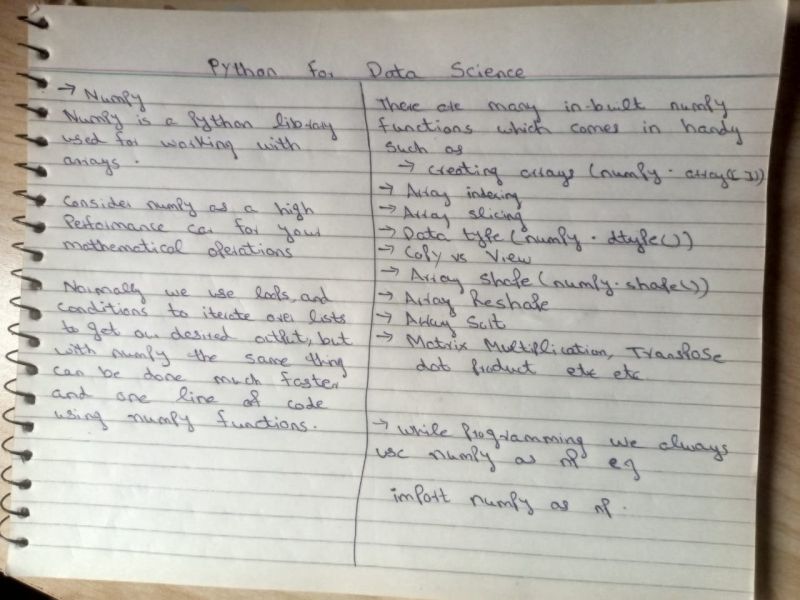 Python for Data Science
→ Numpy
Numpy is a Python library
used for working with
arrays.
Consider numpy as a high
Performance car for your
mathematical operations
Normally we use loops, and
conditions to iterate over lists
to get our desired output, but
with numpy the same thing
can be done much faster
and one line of code
using numpy functions.
There are many in-built numpy
functions which comes in handy
such as
→ creating arrays (numpy.array([]))
→ Array indexing
→ Array slicing
→ Data type (numpy.dtype())
→ Copy vs View
→ Array shape (numpy.shape())
→ Array Reshape
→ Array Sort
→ Matrix Multiplication, Transpose
dot product etc etc.
→ while programming we always
use numpy as np eg
import numpy as np.